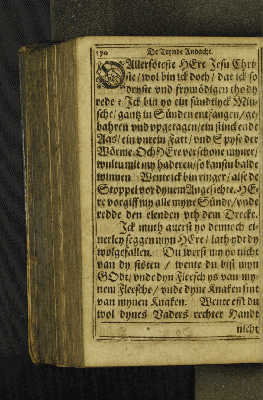 190 De Teynde Andacht.
Allerföteste HEre Jesu Chri-
ste / wol bin ick doch / dat ick so
dryste vnd frymödigen tho dy
rede? Jck bin yo ein sündtlyck Min-
sche / gantz in Sünden entfangen / ge-
bahren vnd vpgetagen / ein stinckende
Aas / ein vnrein Fatt / vnd Spyse der
Wörme. Och HEre verschone myner /
wultu mit my haderen / so kanstu bald
winnen. Wente ick bin ringer / alse de
Stoppel vor dynem Angesichte. HE-
re vorgiff my alle myne Sünde / vnde
redde den elenden vth dem Drecke.
Jck muth auerst yo dennoch ei-
nerley seggen myn HEre / lath ydt dy
wolgefallen. Du werst my yo nicht
van dy stöten / wente du bist myn
GOdt / vnde dyn Fleesch ys van my-
nem Fleesche / vnde dyne Knaken sint
van mynen Knaken. Wente effst du
wol dynes Vaders rechter Handt
nicht